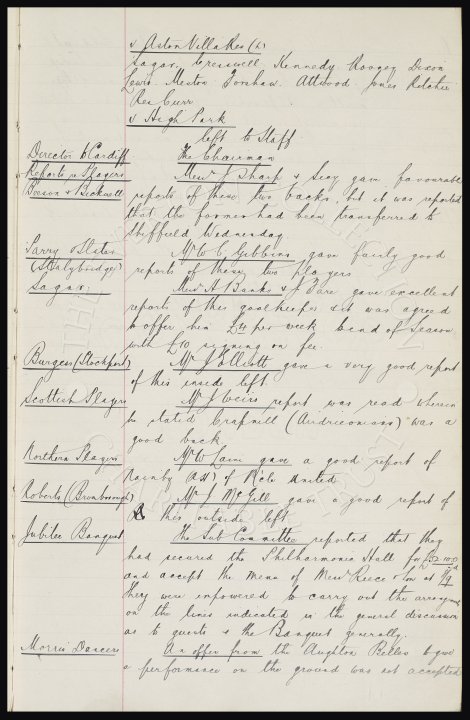 v Aston Villa Res (h)
Sagar, Cresswell, Kennedy, Rooney, Dixon
Lewis, Merton, Forshaw, Attwood, Jones, Fletcher
Res Curr
v High Park
left to Staff
Director to Cardiff The Chairman
Reports re Players Messrs J Sharp & Seay gave favourable
Bosson & Bicknell reports of these two backs, but it was reported
that the former had been transferred to
Sheffield Wednesday
Parry & Mr W C Gibbins gave fairly good
(Stalybridge) reports of these two players
Sagar Messrs A Banks & J gave excellent
reports of this goalkeeper & it was agreed
to offer him £4 per week to end of Season
with £10 signing on fee.
Burgess (Stockport) Mr J Elliott gave a very good report
of this inside left
Scottish Players Mr J Weirs report was read wherein
he stated Crapnell (Airdrieonians) was a
good back
Northern Players Mr W Cain gave a good report of
of United
Roberts (Bromborough) Mr J McGill gave a good report of
this outside left
Jubilee Banquet The Sub Committee reported that they
had secured the Philharmonic Hall for
and accept the menu of Messrs Reece & Son at
They were empowered to carry out the arrangements
on the lines indicated in the general discussion
as to guests & the Banquet generally.
Morris Dancers An offer from the Aughton to give
a performance on the ground was not accepted